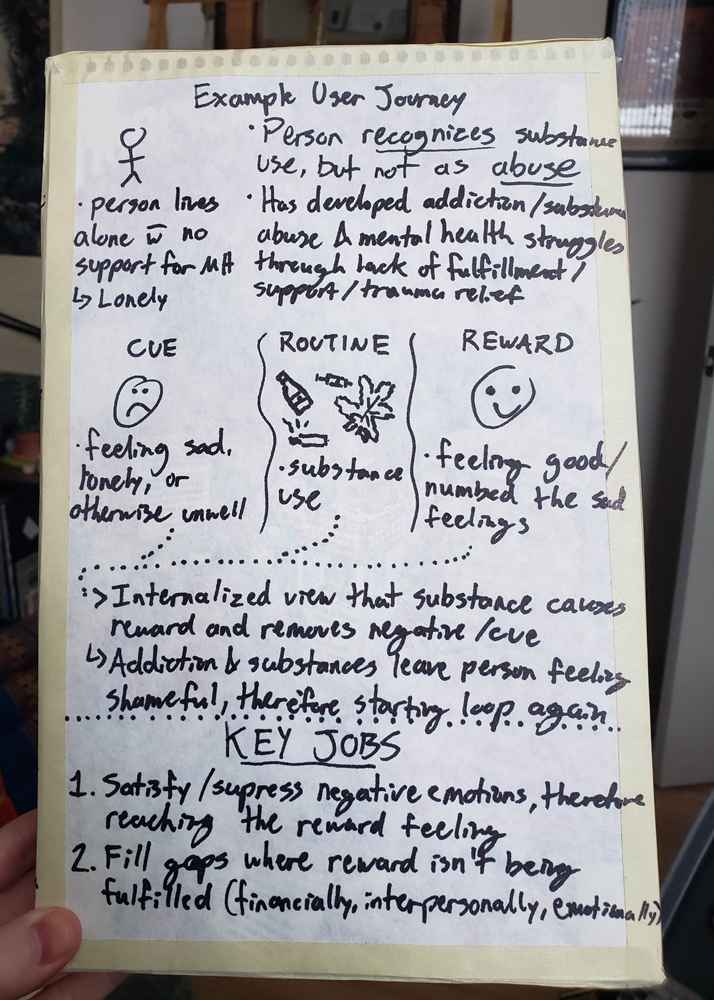 Example User Journey
· person lives
alone w̄ no
support for MH
↳ Lonely
· Person recognizes substance
use, but not as abuse
· Has developed addiction/substance
abuse & mental health struggles
through lack of fulfillment/
support/trauma relief
CUE
· feeling sad,
lonely, or
otherwise unwell
ROUTINE
· substance
use
REWARD
· feeling good/
numbed the sad
feelings
> Internalized view that substance causes
reward and removes negative/cue
↳ Addiction & substances leave person feeling
shameful, therefore starting loop again
KEY JOBS
1. Satisfy/supress negative emotions, therefore
reaching the reward feeling
2. Fill gaps where reward isn't being
fulfilled (financially, interpersonally, emotionally)